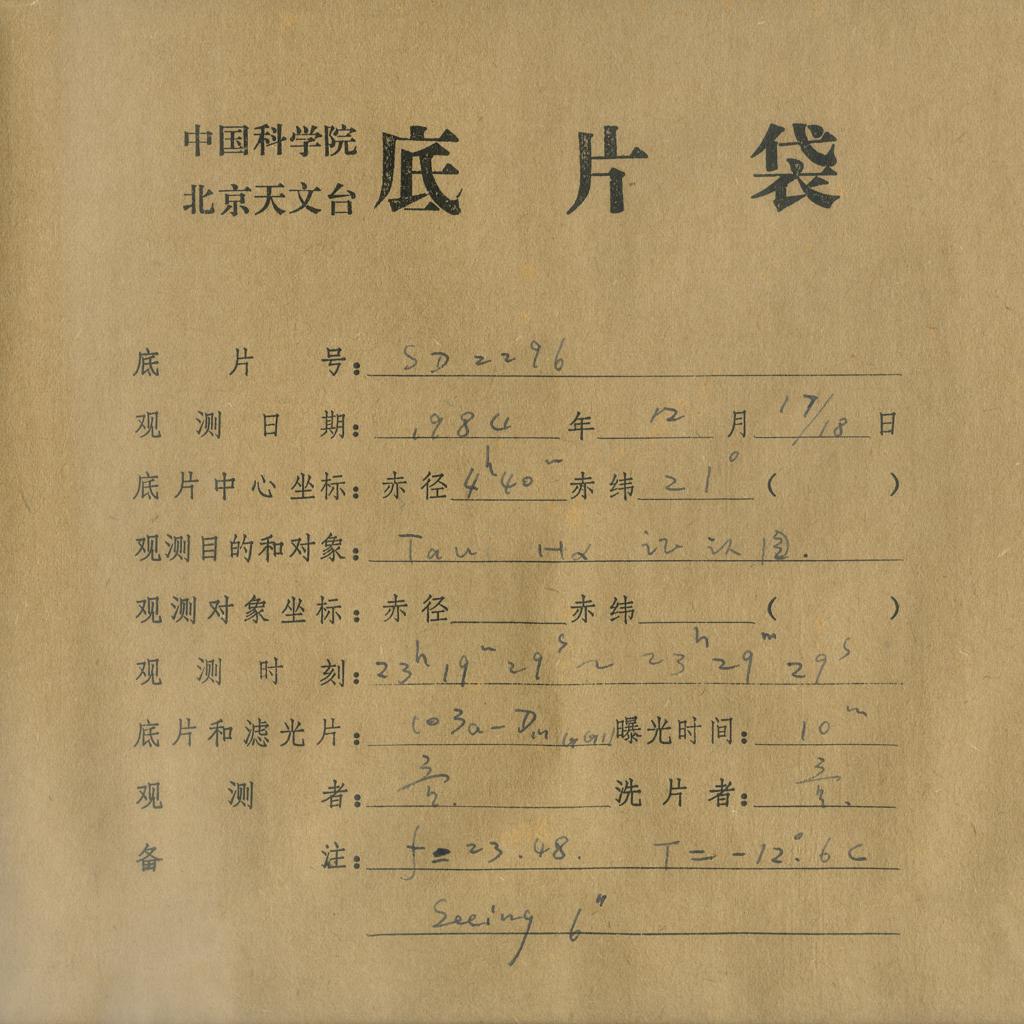 中国科学院
北京天文台
底片袋
底片号：SD2296
观测日期：1984年12月17/18日
底片中心坐标：赤径4h40m赤纬21°（ ）
观测目的和对象：Tau Hα 证认图.
观测对象坐标：赤径 赤纬 （ ）
观测时刻：23h19m29s～23h29m29s
底片和滤光片：103a-D 曝光时间：10m
观测者： 洗片者：
备注：f=23.48. T=-12°.6C
Seeing 6"